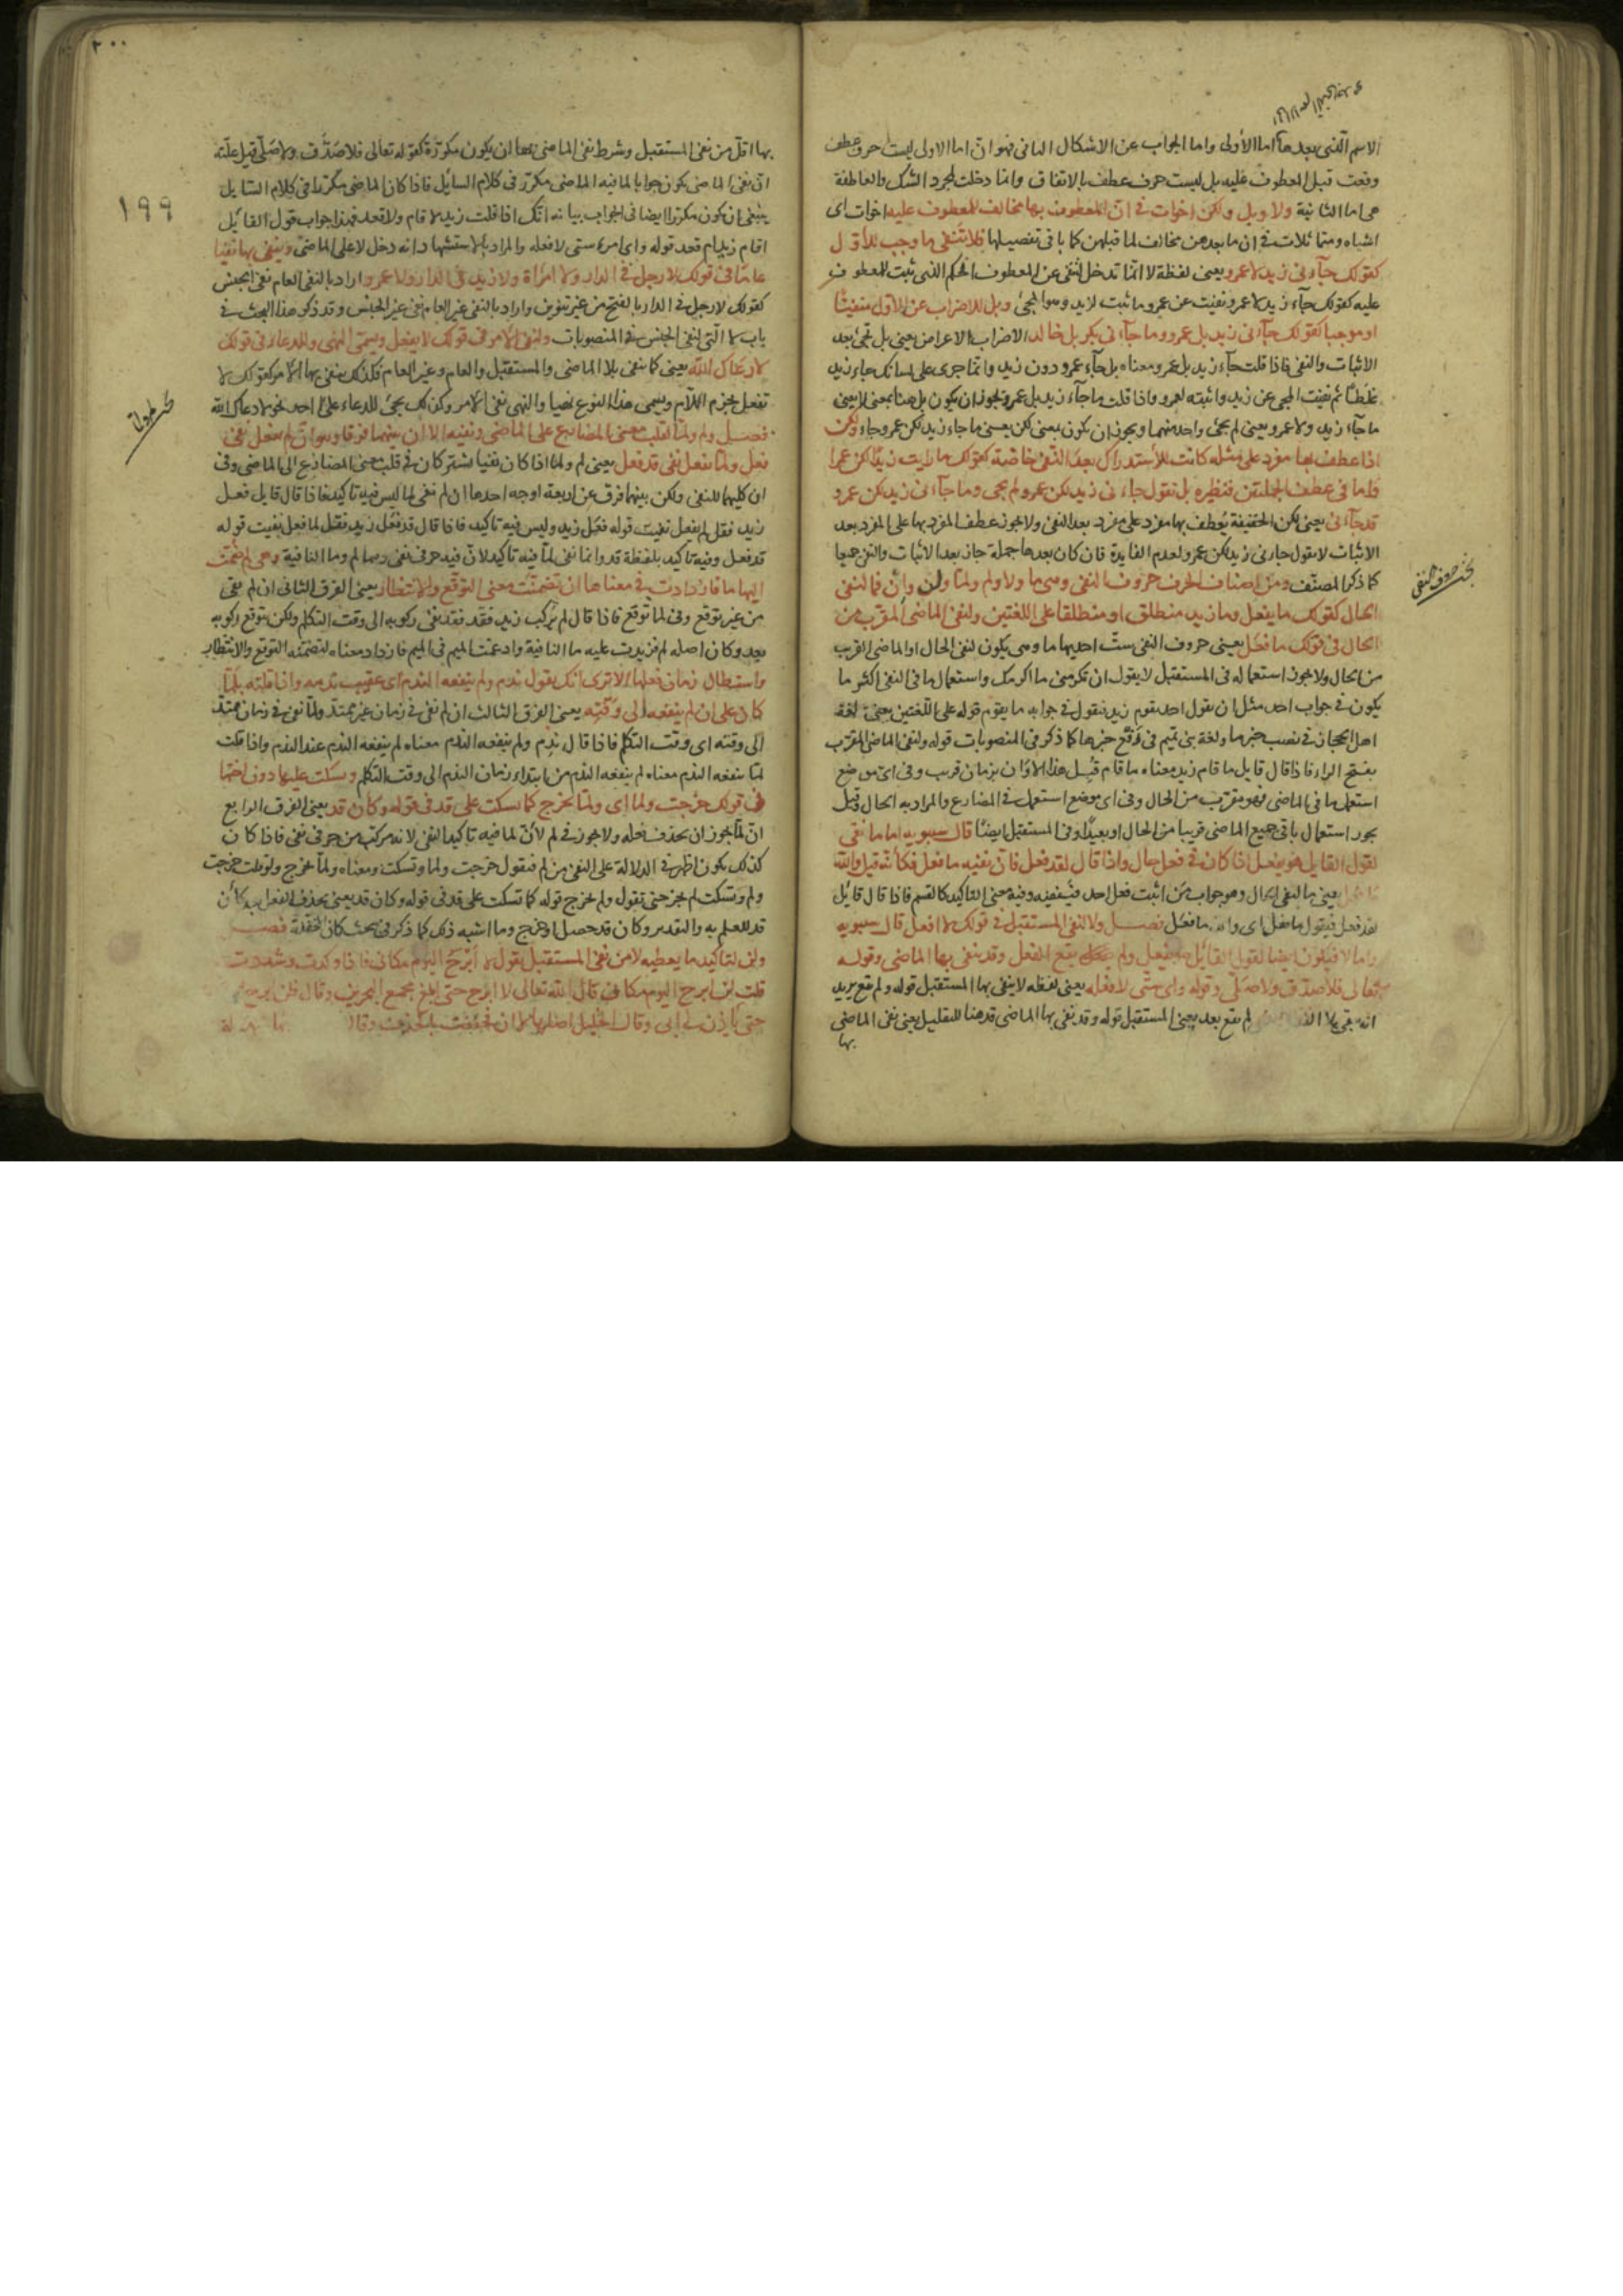 الاسم الذى بعدها اما الأولى واما الجواب عن الاشكال الثانى فهو ان اما الاولى ليست حرف عطف
وقعت قبل المعطوف عليه بل ليست حرف عطف بالاتفاق وانما دخلت لمجرد الشك والعاطفة
هى اما الثانية ولا وبل ولكن اخوات فى ان المعطوف بها مخالف للمعطوف عليه اخوات اى
اشباه ومتماثلات فى ان ما بعدهن مخالف لما قبلهن كما ياتى تفصيلها فلا تنفى ما وجب للأول
كقولك جآءنى زيد لا عمرو يعنى لفظة لا انما تدخل لتنفى عن المعطوف الحكم الذى ثبت للمعطوف
عليه كقولك جآء زيد لا عمرو نفيت عن عمرو ما ثبت لزيد وهو المجئ وبل للاضراب عن الأول منفيًا
او موجبا كقولك جآءنى زيد بل عمرو وما جآءنى بكر بل خالد الاضراب الاعراض يعنى بل تجئ بعد
الاثبات والنفى فاذا قلت جآء زيد بل عمرو معناه بل جآء عمرو دون زيد وانما جرى على لسانك جاء زيد
غلطًا ثم نفيت المجئ عن زيد واثبته لعمرو واذا قلت ما جآء زيد بل عمرو يجوز ان يكون بل هنا بمعنى لا يعنى
ما جآء زيد ولا عمرو يعنى لم يجئ واحد منهما ويجوز ان يكون بمعنى لكن يعنى ما جاء زيد لكن عمرو جاء ولكن
اذا عطف بها مفرد على مثله كانت للأستدراك بعد النفى خاصة كقولك ما رايت زيدًا لكن عمرا
واما فى عطف الجملتين فنظيره بل تقول جاءنى زيد لكن عمرو لم يجى وما جآءنى زيد لكن عمرو
قد جآءنى يعنى لكن الخفيفة يُعطف بها مفرد على مفرد بعد النفى ولا يجوز عطف المفرد بها على المفرد بعد
الاثبات لا يقول جاءنى زيد لكن عمرو لعدم الفايدة فان كان بعدها جملة جاز بعد الاثبات والنفى جميعا
كما ذكر المصنّف ومن اصناف الحرف حروف النفى وهى ما ولا ولم ولمّا ولن وانْ فما لنفى
الحال كقولك ما يفعل وما زيد منطلق او منطلقا على اللغتين ولنفى الماضى المقرب من
الحال فى قولك ما فعَل يعنى حروف النفى ستّ احديها ما وهى يكون لنفى الحال او الماضى القريب
من الحال ولا يجوز استعماله فى المستقبل لا يقول ان تكرمنى ما اكرمك واستعمال ما فى النفى اكثر ما
يكون فى جواب احد مثل ان يقول احد يقوم زيد فنقول فى جوابه ما يقوم قوله على اللغتين يعنى لغة
اهل الحجاز فى نصب خبر ما ولغة بنى تميم فى رفع خبرها كما ذكر فى المنصوبات قوله ولنفى الماضى المقرّب
بفتح الراء فاذا قال قايل ما قام زيد معناه ما قام قبل هذا الاوان بزمان قريب وفى اى موضع
استعمل ما فى الماضى فهو مقرّب من الحال وفى اى موضع استعمل فى المضارع والمراد به الحال وقيل
يجوز استعمال باقى جميع الماضى قريبا من الحال او بعيدًا وفى المستقبل ايضًا قال سيبويه اما ما نفى
لقول القايل هو يفعل اذا كان فى فعل حال واذا قال لقد فعل فان نفيه ما فعل فكأنه قيل والله
يعنى ما لنفى الحال وهو جواب من اثبت فعل احد فينفيه وفيه معنى التاكيد كالقسم فاذا قال قايل
لقد فعل فيقول ما فعل اى والله ما فعل فصل ولا لنفى المستقبل فى قولك لا افعل قال سيبويه
واما لا فيكون نفيا لقول القائل هو يفعل ولم يقع الفعل وقد ينفى بها الماضى وقوله
تعالى فلا صدّق ولا صلّى وقوله واى شئى لا فعله يعنى لفظه لا ينفى بها المستقبل قوله ولم يقع يريد
لم يقع بعد يعنى المستقبل قوله وقد نفى بها الماضى قد هنا للتقليل يعنى نفى الماضى
بها
بحث حروف النفى
٢٠٠
١٩٩
بها اقلّ من نفى المستقبل وشرط نفى الماضى بها ان يكون مكررة كقوله تعالى فلا صدّق ولا صلّى قيل علّته
انّ نفى الماضى يكون جوابا لما فيه الماضى مكرّر فى كلام السايل فاذا كان الماضى مكررا فى كلام السّايل
ينبغى ان يكون مكررا ايضا فى الجواب بيانه انّك اذا قلت زيد لا قام ولا قعد فهذا جواب قول القائل
اقام زيد ام قعد قوله واى امرء سىّئ لا فعله والمراد بالاستشهاد انه دخل لا على الماضى وينفى بها نفيا
عامًا فى قولك لا رجل فى الدار ولا امراة ولا زيد فى الدار ولا عمرو اراد بالنفى العام نفى الجنس
كقولك لا رجل فى الدار بالفتح من غير تنوين واراد بالنفى غير العام نفى غير الجنس وقد ذكر هذا البحث فى
باب لا التى لنفى الجنس فى المنصوبات ولنفى الامر فى قولك لا يفعل ويسمّى النهى والدعاء فى قولك
لا رعاك الله يعنى كما ينفى بلا الماضى والمستقبل والعام وغير العام فكذلك ينفى بها الأمر كقولك لا
تفعل بجزم اللام ويسمى هذا النوع نهيا والنهى نفى الامر وكذلك يجئ للدعاء على احد نحو لا رعاك الله
فصل ولم ولمّا لقلب معنى المضارع على الماضى ونفيه الا ان بينهما فرقا وهو انّ لم يفعل نفى
فعل ولمّا يفعل نفى قد فعل يعنى لم ولما اذا كان نفيا يشتركان فى قلب معنى المضارع الى الماضى وفى
ان كليهما للنفى ولكن بينهما فرق من اربعة اوجه احدها ان لم نفى لما ليس فيه تاكيد فاذا قال قايل فعل
زيد فقل لم يفعل نفيت قوله فعَل زيد وليس فيه تاكيد فاذا قال قد فعل زيد فقل لما يفعل نفيت قوله
قد فعل وفيه تاكيد بلفظة قد وانما نفى لمّا فيه تاكيد لانّ فيه حرفى نفى وهما لم وما النافية وهى لم ضمّت
اليها ما فازدادت فى معناها ان تضمنت معنى التوقّع والانتظار يعنى الفرق الثانى ان لم نفى
من غير توقع وفى لما توقع فاذا قال لم يركب زيد فقد نفى ركوبه الى وقت التكلم ولكن يتوقع ركوبه
بعد وكان اصله لم فزيدت عليه ما النافية وادغمت الميم فى الميم فازداد معناه لتضمّنه التوقع والانتظار
واستطال زمان فعلها الا ترى انك يقول ندم ولم ينفعه الندم اى عقيب ندمه واذا قلته بلمّا
كان على ان لم ينفعه الى وقته يعنى الفرق الثالث ان لم نفى فى زمان غير ممتدّ ولمّا نفى فى زمان ممتدّ
الى وقته اى وقت التكلم فاذا قال ندم ولم ينفعه الندم معناه لم ينفعه الندم عند الندم واذا قلت
لمّا ينفعه الندم معناه لم ينفعه الندم من ابتداء زمان الندم الى وقت التكلم ويسكت عليها دون اختها
فى قولك خرجت ولما اى ولمّا يخرج كما يسكت على قد فى قوله وكان قد يعنى الفرق الرابع
انّ لمّا يجوز ان يحذف فعله ولا يجوز فى لم لأنّ لما فيه تاكيد النفى لانه مركب من حرفى نفى فاذا كان
كذلك يكون اظهر فى الدلالة على النفى من لم فيقول خرجت ولما وتسكت ومعناه ولمّا يخرج ولو قلت خرجت
ولم وتسكت لم يجز حتى تقول ولم يخرج قوله كما تسكت على قد فى قوله وكان قد يعنى يحذف الفعل بعد كأن
قد للعلم به والتقدير وكان قد حصل او خرج وما اشبه ذلك كما ذكر فى بحث كان المخففة فصل
ولن لتاكيد ما يعطيه لا من نفى المستقبل يقول لا ابرَح اليوم مكانى فاذا وكدت وشددت
قلت لن ابرح اليوم مكانى قال الله تعالى لا ابرح حتى ابلغ مجمع البحرين وقال فلن ابرح
حتى يأذن لى ابى وقال الخليل اصلها لا ان فخُفّفت بالحذف وقال